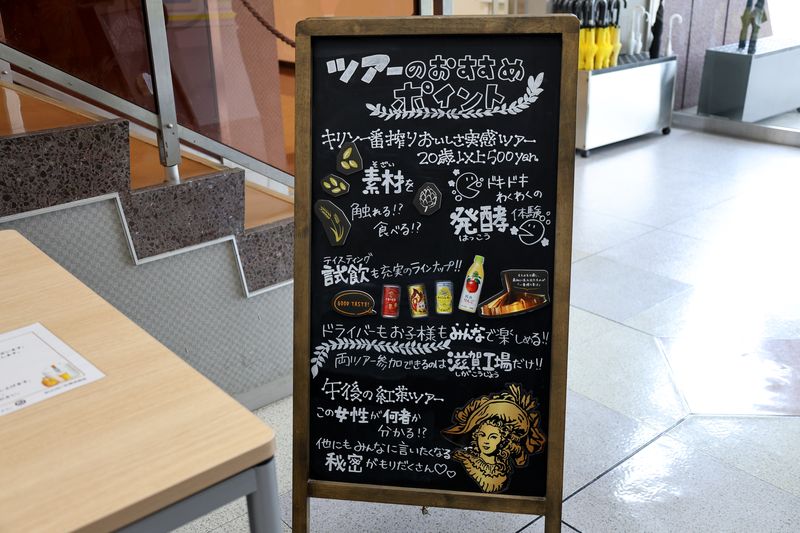 ツアーのおすすめ
ポイント
キリン一番搾りおいしさ実感ツアー
20歳以上500yen
そざい
素材を
触れる!?
食べる!?
ドキドキ
わくわくの
発酵体験
はっこう
テイスティング
試飲も充実のラインナップ!!
GOOD TASTE!
ドライバーもお子様もみんなで楽しめる!!
両ツアー参加できるのは滋賀工場だけ!!
しがこうじょう
午後の紅茶ツアー
この女性が何者か
分かる!?
他にもみんなに言いたくなる
秘密がもりだくさん♡♡